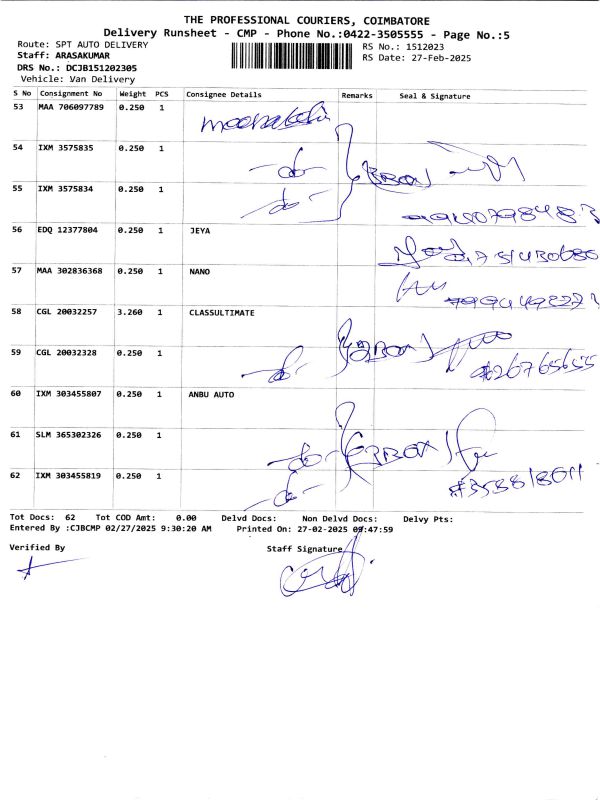 THE PROFESSIONAL COURIERS, COIMBATORE
Delivery Runsheet - CMP - Phone No.:0422-3505555 - Page No.:5
Route: SPT AUTO DELIVERY RS No.: 1512023
Staff: ARASAKUMAR RS Date: 27-Feb-2025
DRS No.: DCJB151202305
Vehicle: Van Delivery
S No Consignment No Weight PCS Consignee Details Remarks Seal & Signature
53 MAA 706097789 0.250 1
54 IXM 3575835 0.250 1 -do-
55 IXM 3575834 0.250 1 -do-
56 EDQ 12377804 0.250 1 JEYA
57 MAA 302836368 0.250 1 NANO
58 CGL 20032257 3.260 1 CLASSULTIMATE
59 CGL 20032328 0.250 1 -do-
60 IXM 303455807 0.250 1 ANBU AUTO
61 SLM 365302326 0.250 1 -do-
62 IXM 303455819 0.250 1 -do-
Tot Docs: 62 Tot COD Amt: 0.00 Delvd Docs: Non Delvd Docs: Delvy Pts:
Entered By :CJBCMP 02/27/2025 9:30:20 AM Printed On: 27-02-2025 09:47:59
Verified By Staff Signature